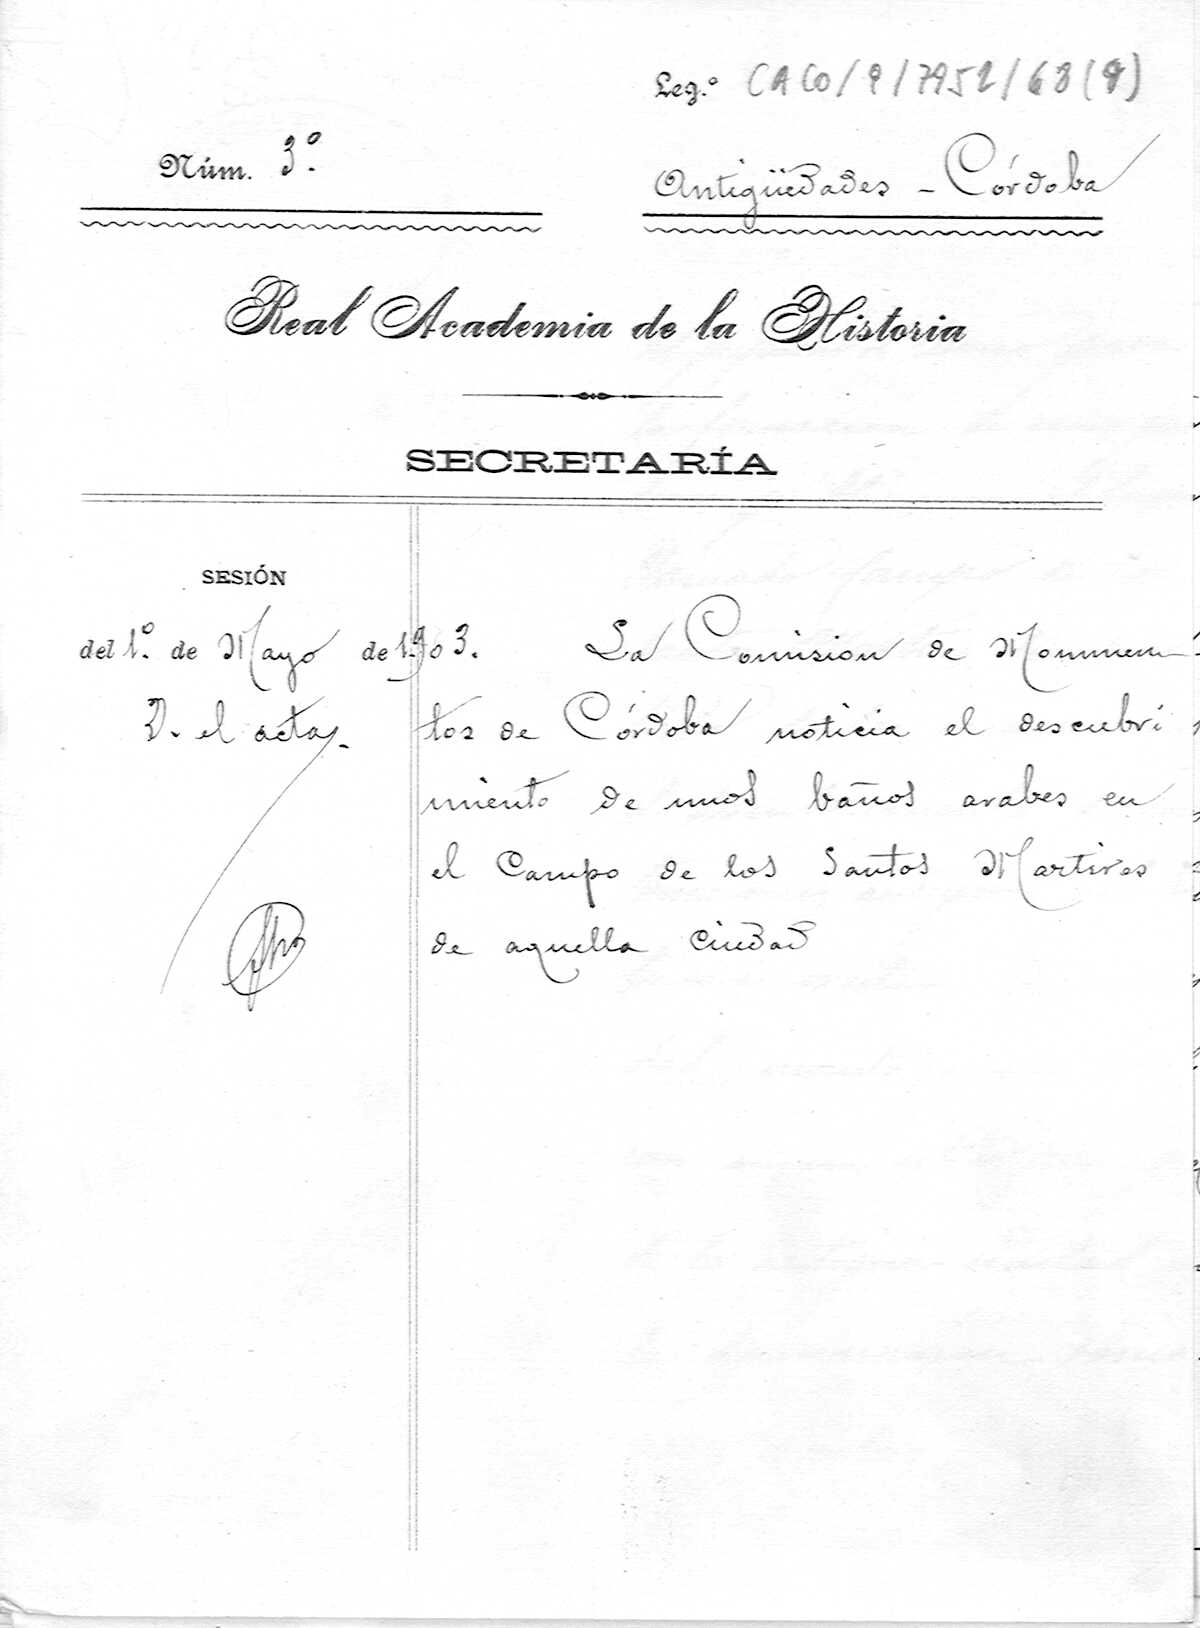 Leg.º CACO/9/7952/68(9)
Núm. 3º.
Antigüedades - Córdoba
Real Academia de la Historia
SECRETARÍA
SESIÓN
del 1º. de Mayo de 1903.
V. el acta.
La Comision de Monumen-
tos de Córdoba noticia el descubri
miento de unos baños arabes en
el Campo de los Santos Martires
de aquella ciudad